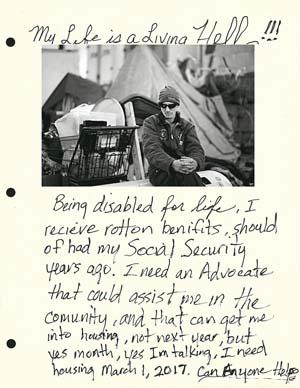 My Life is a Living Hell !!!
Being disabled for life, I
recieve rotton benifits, should
of had my Social Security
years ago. I need an Advocate
that could assist me in the
comunity, and that can get me
into housing, not next year, but
yes month, yes Im talking, I need
housing March 1, 2017. Can Anyone Help